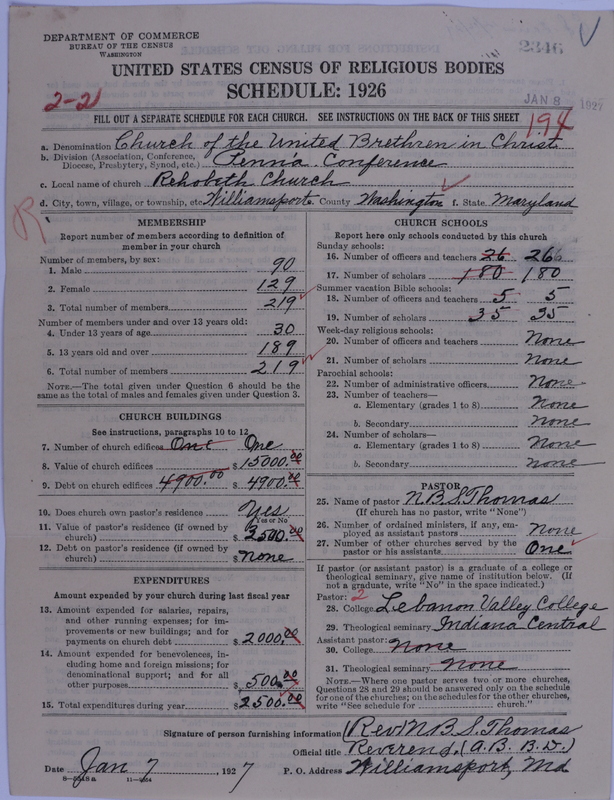 DEPARTMENT OF COMMERCE
BUREAU OF THE CENSUS
WASHINGTON
2346
UNITED STATES CENSUS OF RELIGIOUS BODIES
SCHEDULE: 1926
2-21
JAN 8 1927
FILL OUT A SEPARATE SCHEDULE FOR EACH CHURCH. SEE INSTRUCTIONS ON THE BACK OF THIS SHEET
194
a. Denomination Church of the United Brethren in Christ
b. Division (Association, Conference, Diocese, Presbytery, Synod, etc.) Penna. Conference
c. Local name of church Rehobeth Church
d. City, town, village, or township, etc. Williamsport e. County Washington f. State Maryland
R
MEMBERSHIP
Report number of members according to definition of
member in your church
Number of members, by sex:
1. Male 90
2. Female 129
3. Total number of members 219
Number of members under and over 13 years old:
4. Under 13 years of age 30
5. 13 years old and over 189
6. Total number of members 219
NOTE.—The total given under Question 6 should be the
same as the total of males and females given under Question 3.
CHURCH BUILDINGS
See instructions, paragraphs 10 to 12
7. Number of church edifices One One
8. Value of church edifices $ 15000.00
9. Debt on church edifices 4900.00 $ 4900.00
10. Does church own pastor's residence Yes
Yes or No
11. Value of pastor's residence (if owned by
church) $ 3500.00
12. Debt on pastor's residence (if owned by
church) $ None
EXPENDITURES
Amount expended by your church during last fiscal year
13. Amount expended for salaries, repairs,
and other running expenses; for im-
provements or new buildings; and for
payments on church debt $ 2000.00
14. Amount expended for benevolences, in-
cluding home and foreign missions; for
denominational support; and for all
other purposes $ 500.00
15. Total expenditures during year $ 2500.00
CHURCH SCHOOLS
Report here only schools conducted by this church
Sunday schools:
16. Number of officers and teachers 26 26
17. Number of scholars 180 180
Summer vacation Bible schools:
18. Number of officers and teachers 5 5
19. Number of scholars 35 35
Week-day religious schools:
20. Number of officers and teachers None
21. Number of scholars None
Parochial schools:
22. Number of administrative officers None
23. Number of teachers—
a. Elementary (grades 1 to 8) None
b. Secondary None
24. Number of scholars—
a. Elementary (grades 1 to 8) None
b. Secondary None
PASTOR
25. Name of pastor N B S Thomas
(If church has no pastor, write "None")
26. Number of ordained ministers, if any, em-
ployed as assistant pastors None
27. Number of other churches served by the
pastor or his assistants One
If pastor (or assistant pastor) is a graduate of a college or
theological seminary, give name of institution below. (If
not a graduate, write "No" in the space indicated.)
Pastor: 2
28. College Lebanon Valley College
29. Theological seminary Indiana Central
Assistant pastor:
30. College None
31. Theological seminary None
NOTE.—Where one pastor serves two or more churches,
Questions 28 and 29 should be answered only on the schedule
for one of the churches; on the schedules for the other churches,
write "See schedule for church."
Signature of person furnishing information (Rev) N B S Thomas
Official title Reverend, (A. B. B. D.)
Date Jan 7, 1927 P. O. Address Williamsport, Md